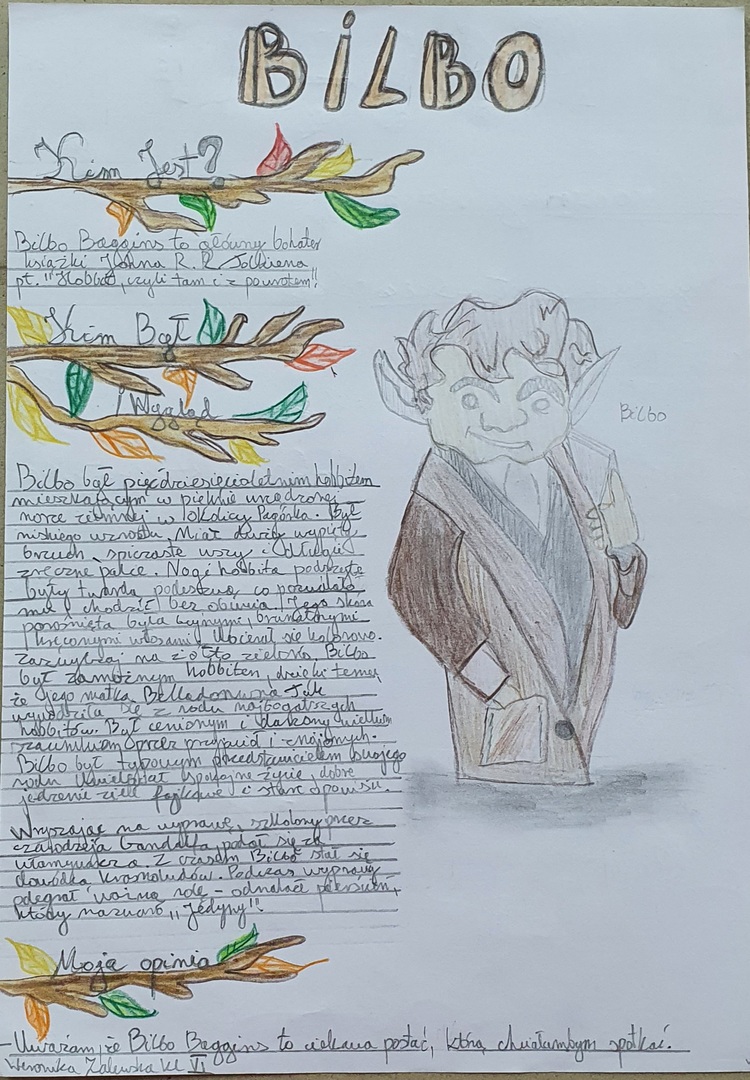 BiLBO
Kim Jest?
Bilbo Baggins to główny bohater
książki Johna R.R Tolkiena
pt. "Hobbit, czyli tam i z powrotem"
Kim Był
Wygląd
Bilbo
Bilbo był pięćdziesięcioletnim hobbitem
mieszkającym w pięknie urządzonej
norze ziemnej w okolicy Pagórka. Był
niskiego wzrostu. Miał duży wypięty
brzuch, spiczaste uszy i długie
zręczne palce. Nogi hobbita podszyte
były twardą podeszwą, co pozwalało
mu chodzić bez obuwia. Jego skóra
porośnięta była bujnymi, brunatnymi
kręconymi włosami. Ubierał się kolorowo.
Zazwyczaj na żółto zielono. Bilbo
był zamożnym hobbitem, dzięki temu,
że jego matka Belladonna Tuk
wywodziła się z rodu najbogatszych
hobbitów. Był cenionym i darzony wielkim
szacunkiem przez przyjaciół i znajomych.
Bilbo był typowym przedstawicielem swojego
rodu Uwielbiał spokojne życie, dobre
jedzenie ziele fajkowe i stare
Wyruszając na wyprawę, szkolony przez
czarodzieja Gandalfa, podjął się za
włamywacza. Z czasem Bilbo stał się
dowódcą krasnoludów. Podczas wyprawy
odegrał ważną rolę - odnalazł pierścień,
który nazwano "Jedyny"!
Moja opinia
-Uważam, że Bilbo Baggins to ciekawa postać, którą chciałabym spotkać.
Weronika Zalewska kl VI